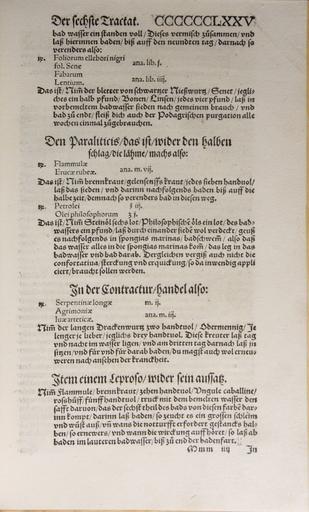 Der sechste Tractat. CCCCCCLXXV
bad wasser ein standen voll / Dieses vermisch züsammen / vnd
laß hierinnen baden / biß auff den neundten tag / darnach so
verenders also:
℞. Foliorum ellebori nigri
fol. Sene ana. lib. ſ.
Fabarum
Lentium. ana. lib. iiij.
Das ist / Nim̄ der bletter von schwartzer Nießwurtz / Senet / jegli-
ches ein halb pfund / Bonen / Linsen / jedes vier pfund / laß im
vorbemeltem badwasser sieden nach gemeinem brauch / vnd
bad zů endt / fleiß dich auch der Podagrischen purgation alle
wochen einmal zügebrauchen.
Den Paraliticis / das ist / wider den halben
schlag / die lähme / machs also:
℞. Flammulæ
Erucæ rubeæ. ana. m. vij.
Das ist: Nim̄ brennkraut / gelensenffs kraut / jedes sieben handuol /
laß das sieden / vnd darinn nachfolgends baden biß auff die
halbe zeit / demnach so verenders bad in diesen weg.
℞. Petrolei
Olei philosophorum
Das ist: Nim̄ Steinöl sechs lot: Philosophische öls ein lot / des bad-
wassers ein pfund / laß durch einander siede wol verdeckt / geuß
es nachfolgends in spongias marinas / badschwem̄ / also daß
das wasser alles in die spongias marinas kom̄ / das leg in das
badwasser vnd bad darab. Dergleichen vergiß auch nicht die
confortatiua / sterckung vnd erquickung / so da inwendig appli
ciert / braucht sollen werden.
In der Contractur / handel also:
℞. Serpentinæ longæ m. ij.
Agrimoniæ
Iuæ arteticæ. ana. m. iij.
Nim̄ der langen Drackenwurtz zwo handuol / Odermennig / Je
lenger je lieber / jeglichs drey handuol. Diese kreuter laß tag
vnd nacht im wasser ligen / vnd am dritten tag darnach laß in
sitzen / vnd für vnd für daraüs baden / du magst auch wol ernew-
weren nach ansehen der kranckheit.
Item einem Leproso / wider sein aussatz.
Nim̄ Flammule / brennkraut / zehen handuol / Vngule caballine /
roßhůff / fünff handuol / truck mit dem bemelten wasser den
safft daruon / das der sechst theil des bads von diesen farbe dar-
inn kompt / darinn laß baden / so zeucht es ein grossen schleim
vnd wůst auß / vn̄ wans die notturfft erfordert gestancks hal-
ben / so ernewers / vnd wann die wirckung auff höret / so laß ab
baden im lauteren badwasser / biß zů end der badenfart.
Mmm iiij In